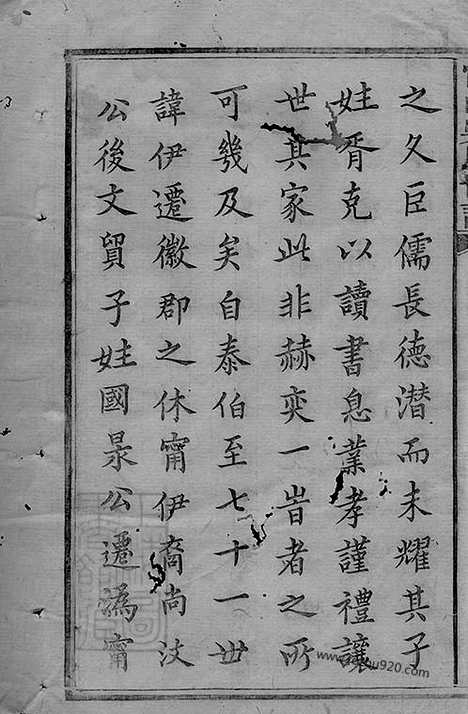 之久臣儒長德潜而未耀其子
姓胥克以讀書息業孝謹禮讓
世其家此非赫奕一旹者之所
可幾及矣自泰伯至七十一世
諱伊遷徽郡之休甯伊裔尚汶
公後文貿子姓國景公遷為甯